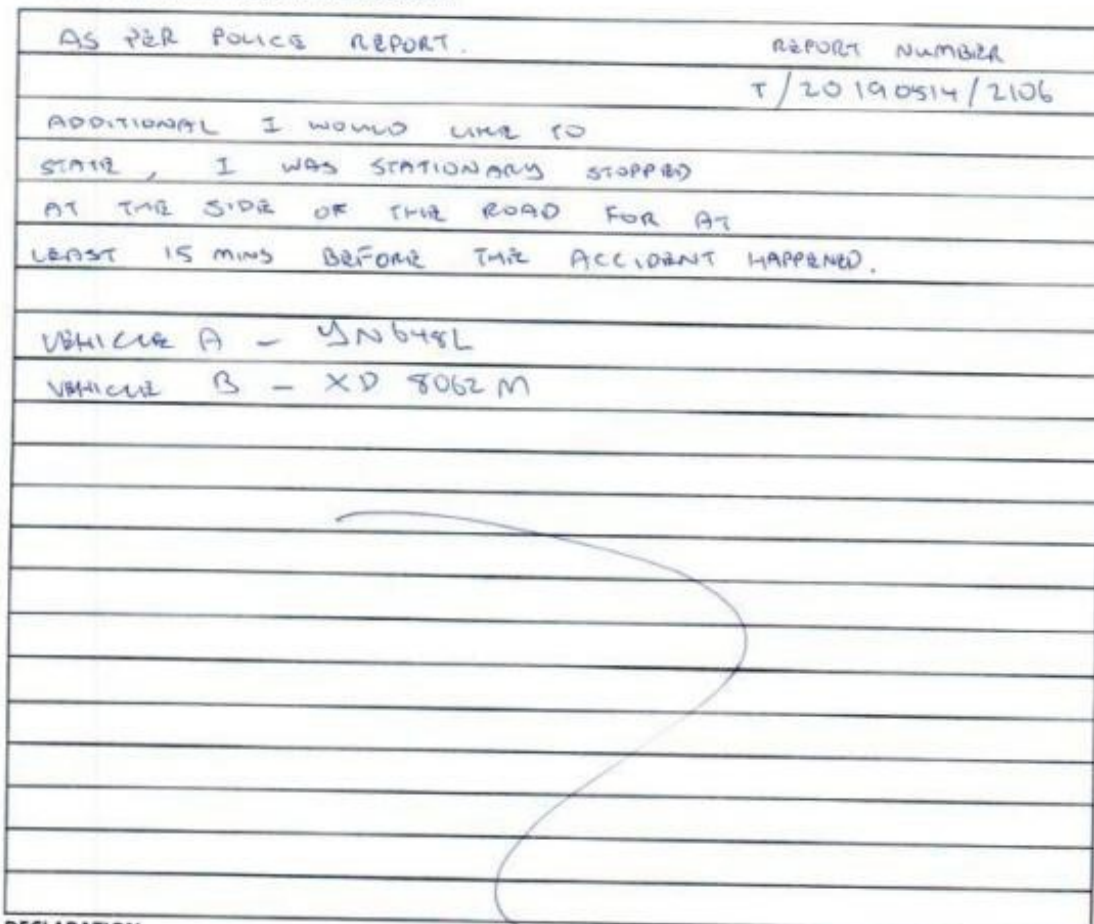 AS PER POLICE REPORT. REPORT NUMBER
T/20190514/2106
ADDITIONAL I WOULD LIKE TO
STATE, I WAS STATIONARY STOPPED
AT THE SIDE OF THE ROAD FOR AT
LEAST 15 MINS BEFORE THE ACCIDENT HAPPENED.
VEHICLE A - YN648L
VEHICLE B - XD 8062 M